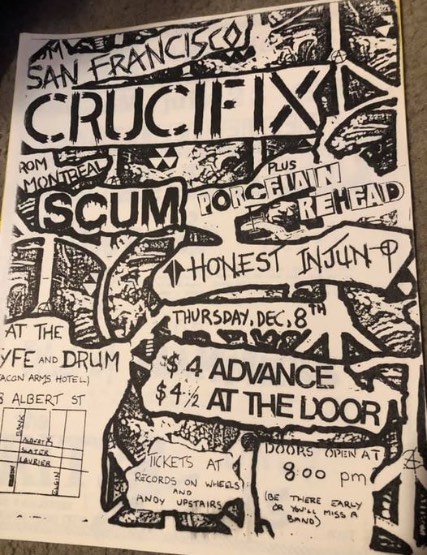 OM
SAN FRANCISCO
CRUCIFIX
ROM
MONTREAL
SCUM
PLUS
PORCELAIN
FOREHEAD
HONEST INJUN
THURSDAY, DEC, 8TH
AT THE
YFE AND DRUM
(ACON ARMS HOTEL)
8 ALBERT ST
BANK
ALBERT
SLATER
LAURIER
ELGIN
$4 ADVANCE
$4 1/2 AT THE DOOR
TICKETS AT
RECORDS ON WHEELS
AND
ANDY UPSTAIRS
DOORS OPEN AT
8:00 pm
(BE THERE EARLY
OR YOU'LL MISS A
BAND)